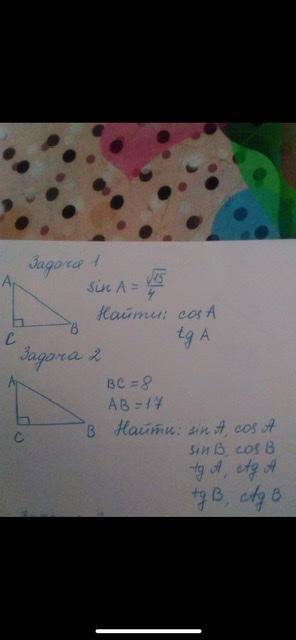 Задача 1
A
sin A = √15/4
Найти: cos A
tg A
C
B
Задача 2
A
BC = 8
AB = 17
Найти: sin A, cos A
sin B, cos B
tg A, ctg A
tg B, ctg B
C
B